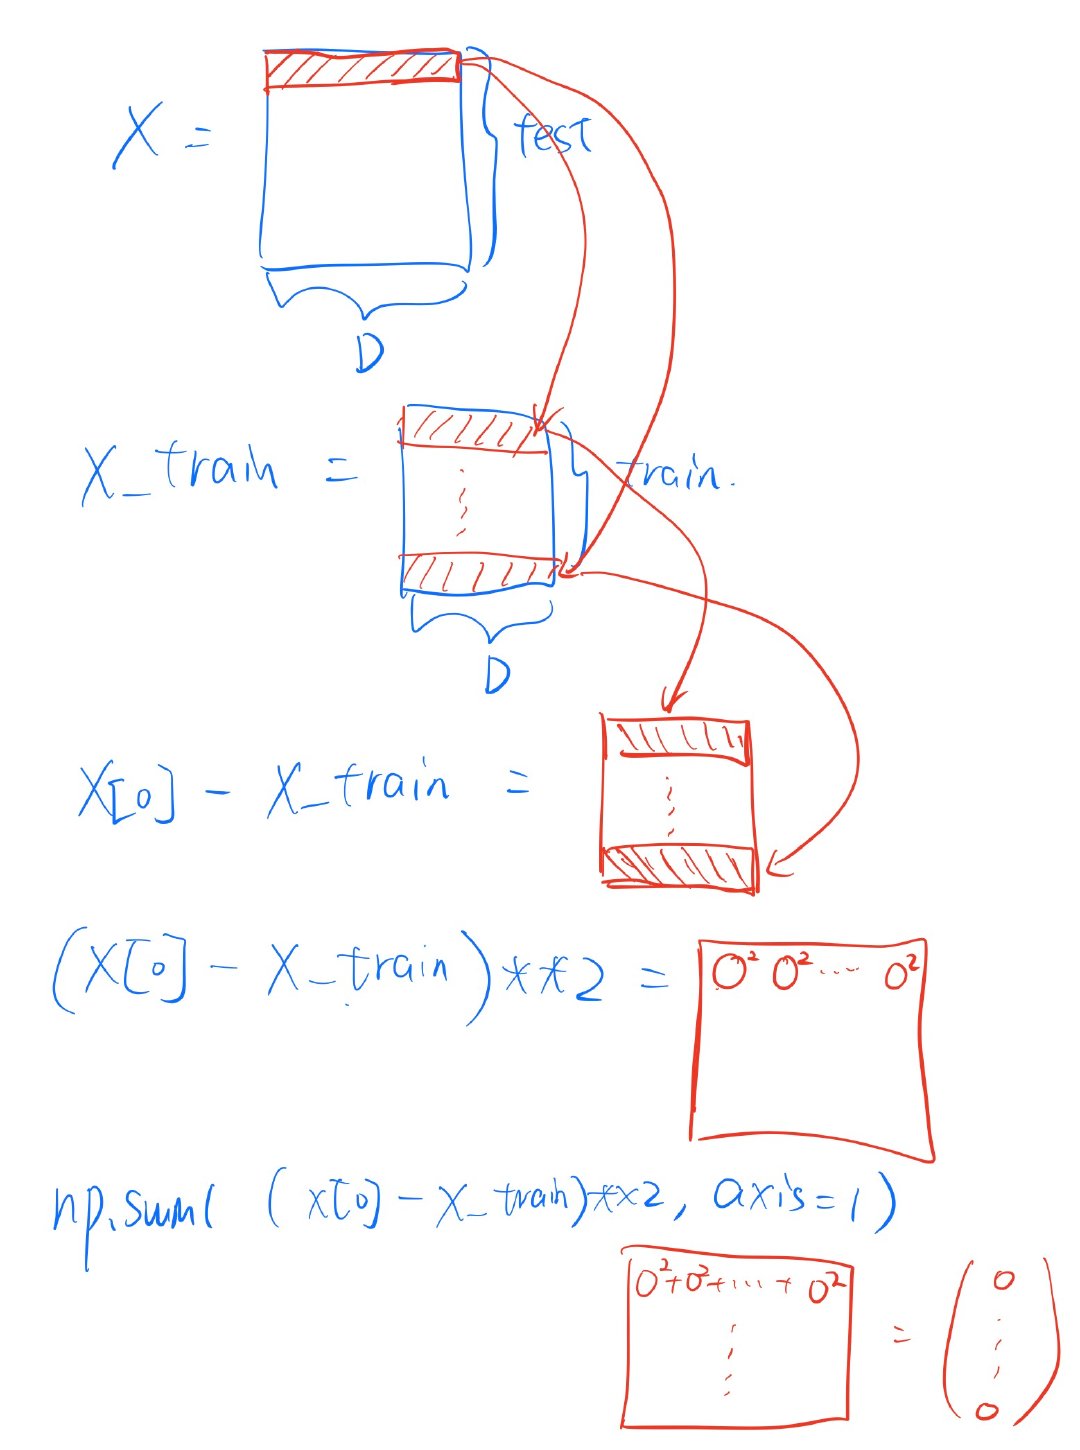 X = test
D
X_train = train.
D
X[0] - X_train =
(X[0] - X_train)**2 = 0² 0² ... 0²
np.sum( (x[0] - X_train)**2, axis=1)
0²+0²+...+ 0² = ( 0
0 )